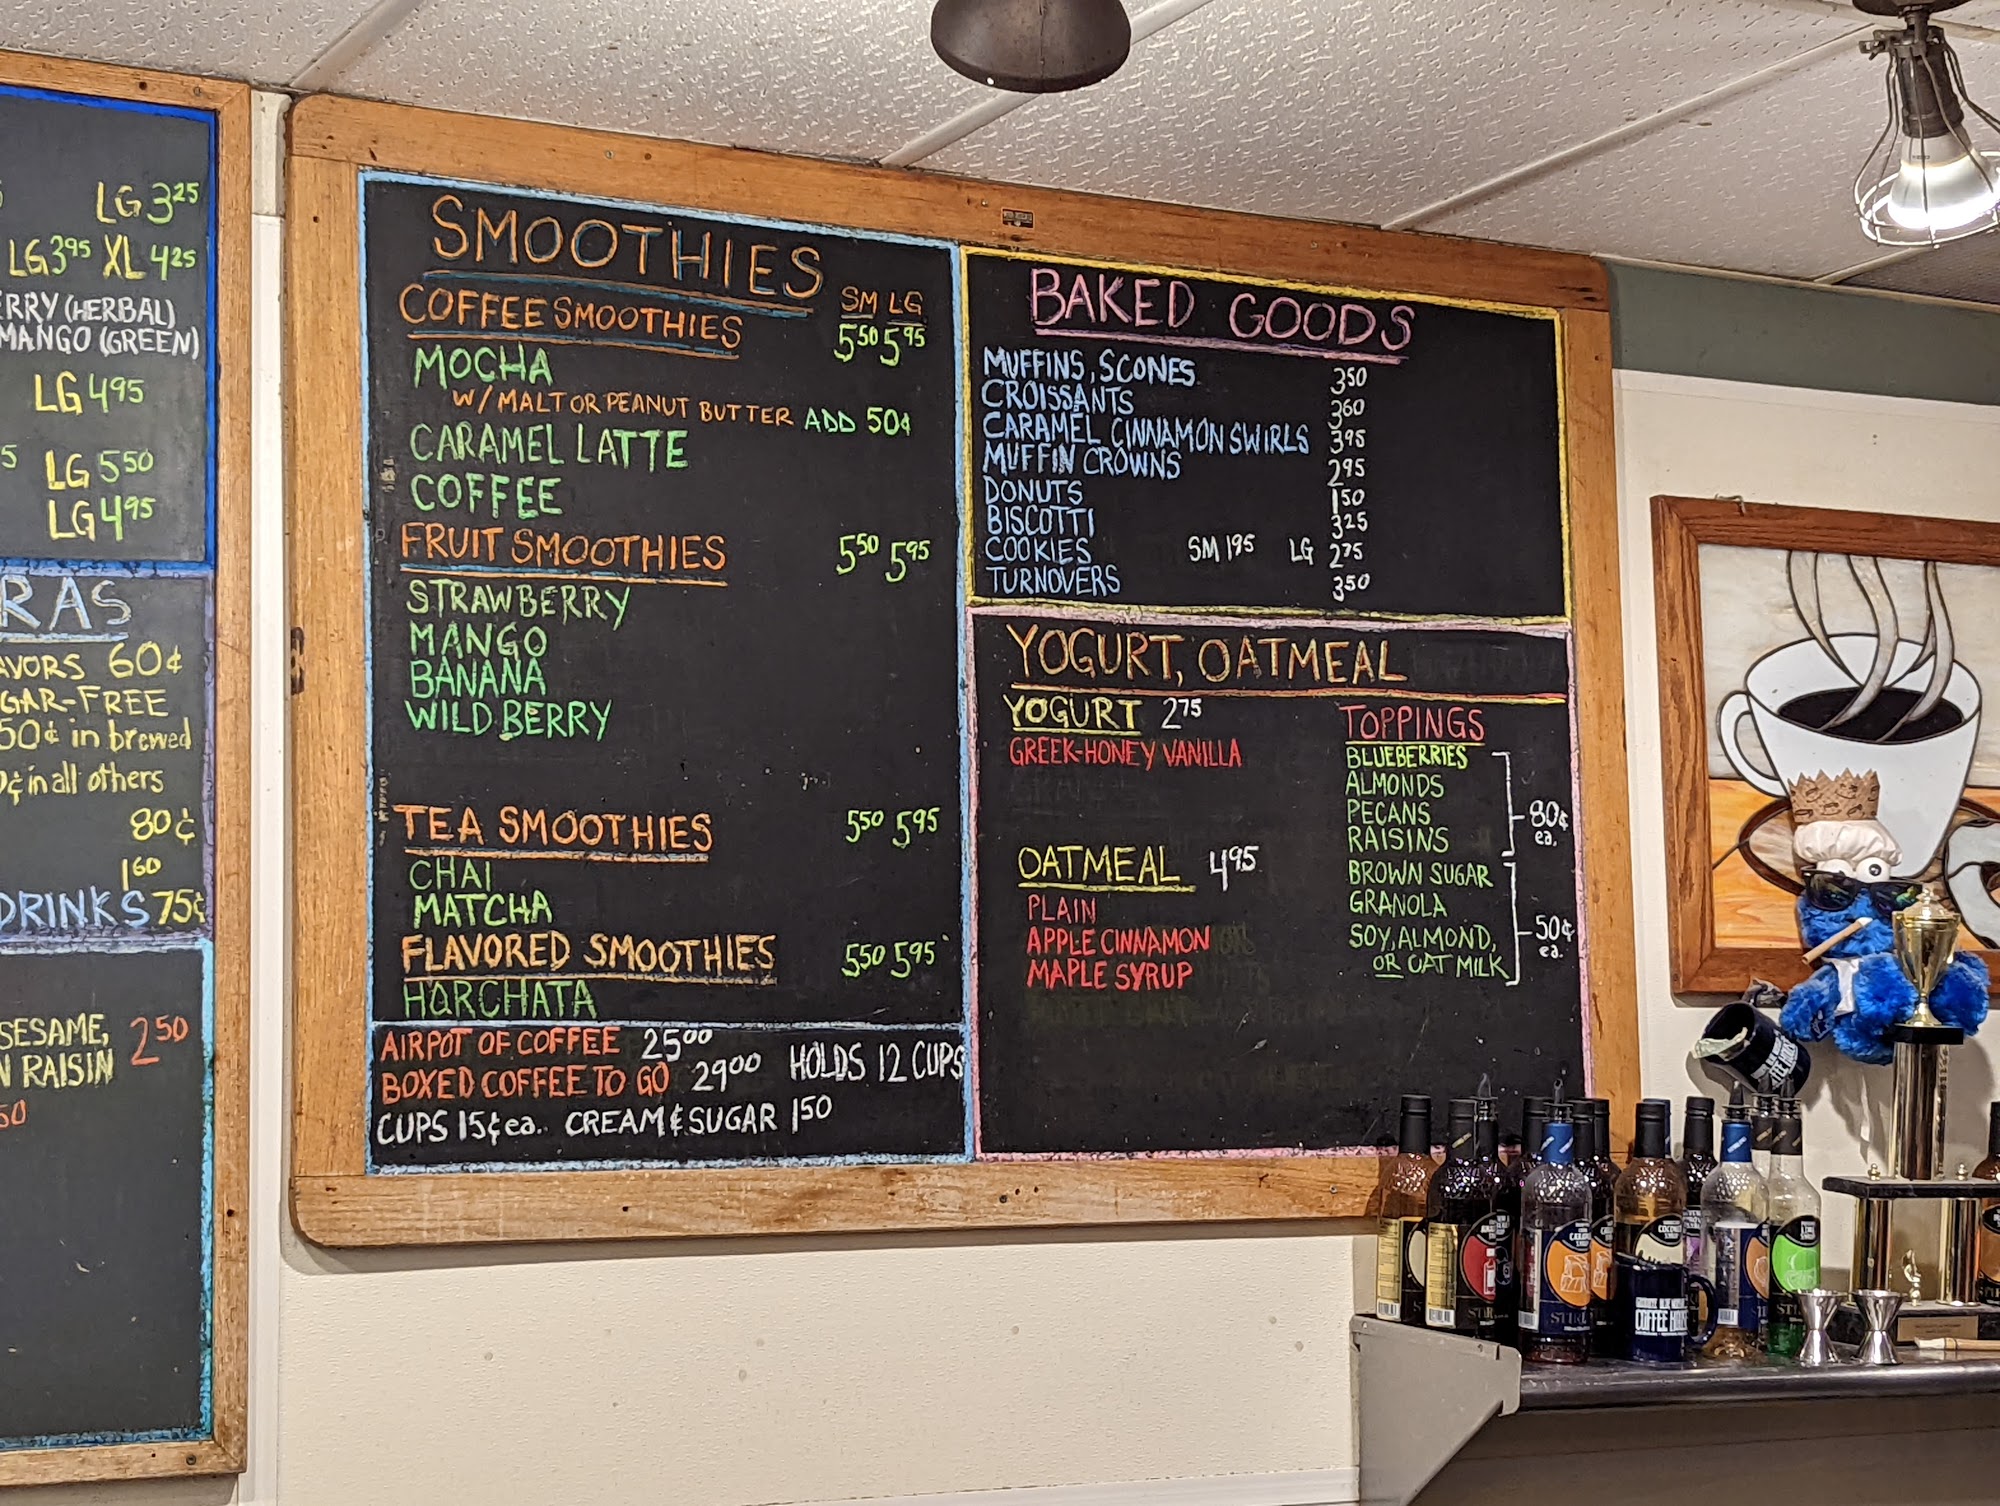 LG 3²⁵
LG 3⁹⁵ XL 4²⁵
(HERBAL)
MANGO (GREEN)
LG 4⁹⁵
LG 5⁵⁰
LG 4⁹⁵
60¢
50¢ in brewed
in all others
80¢
1⁶⁰
DRINKS 75¢
SESAME, 2⁵⁰
RAISIN
SMOOTHIES
SM LG
COFFEE SMOOTHIES 5⁵⁰ 5⁹⁵
MOCHA
W/ MALT OR PEANUT BUTTER ADD 50¢
CARAMEL LATTE
COFFEE
FRUIT SMOOTHIES 5⁵⁰ 5⁹⁵
STRAWBERRY
MANGO
BANANA
WILD BERRY
TEA SMOOTHIES 5⁵⁰ 5⁹⁵
CHAI
MATCHA
FLAVORED SMOOTHIES 5⁵⁰ 5⁹⁵
HORCHATA
AIRPOT OF COFFEE 25⁰⁰
BOXED COFFEE TO GO 29⁰⁰ HOLDS 12 CUPS
CUPS 15¢ ea. CREAM & SUGAR 1⁵⁰
BAKED GOODS
MUFFINS, SCONES 3⁵⁰
CROISSANTS 3⁶⁰
CARAMEL CINNAMON SWIRLS 3⁹⁵
MUFFIN CROWNS 2⁹⁵
DONUTS 1⁵⁰
BISCOTTI 3²⁵
COOKIES SM 1⁹⁵ LG 2⁷⁵
TURNOVERS 3⁵⁰
YOGURT, OATMEAL
YOGURT 2⁷⁵
GREEK-HONEY VANILLA
OATMEAL 4⁹⁵
PLAIN
APPLE CINNAMON
MAPLE SYRUP
TOPPINGS
BLUEBERRIES
ALMONDS
PECANS
RAISINS
80¢ ea.
BROWN SUGAR
GRANOLA
SOY, ALMOND,
OR OAT MILK
50¢ ea.
COFFEE